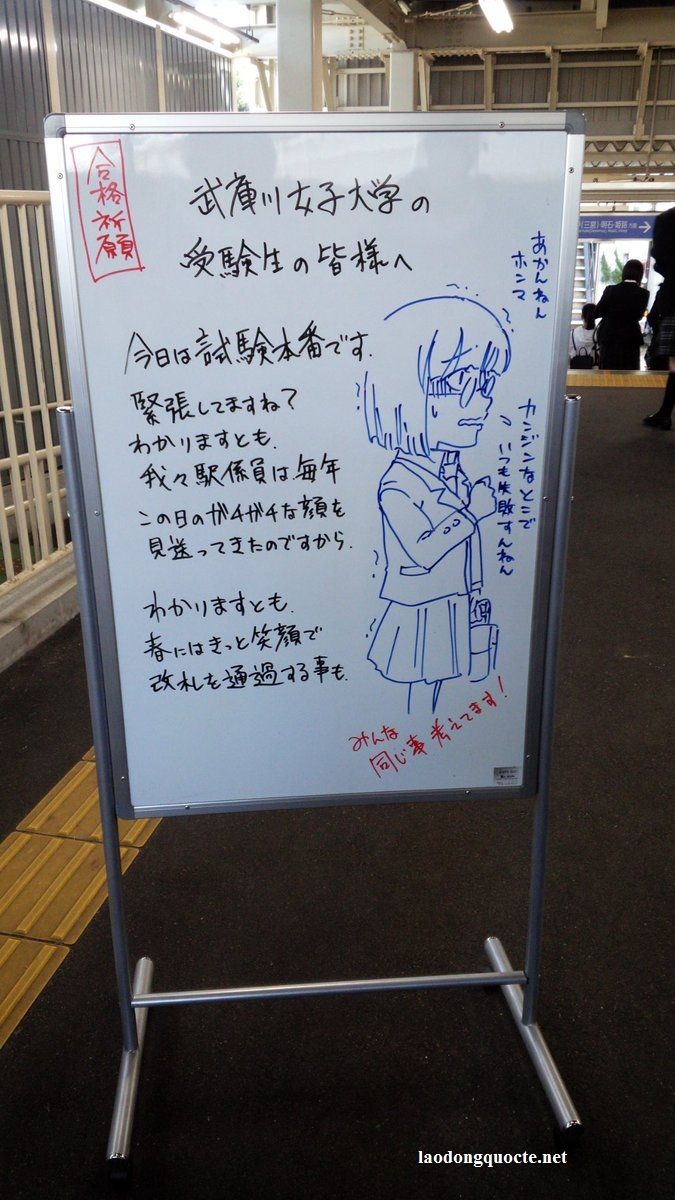 合格祈願
武庫川女子大学の
受験生の皆様へ
今日は試験本番です.
緊張してますね?
わかりますとも.
我々駅係員は毎年
この日のガチガチな顔を
見送ってきたのですから.
わかりますとも.
春にはきっと笑顔で
改札を通過する事も.
あかんねん
ホンマ
カンジンなとこで
いつも失敗すんねん
みんな
同じ事考えてます!
(三宮)・明石・姫路方面
laodongquocte.net